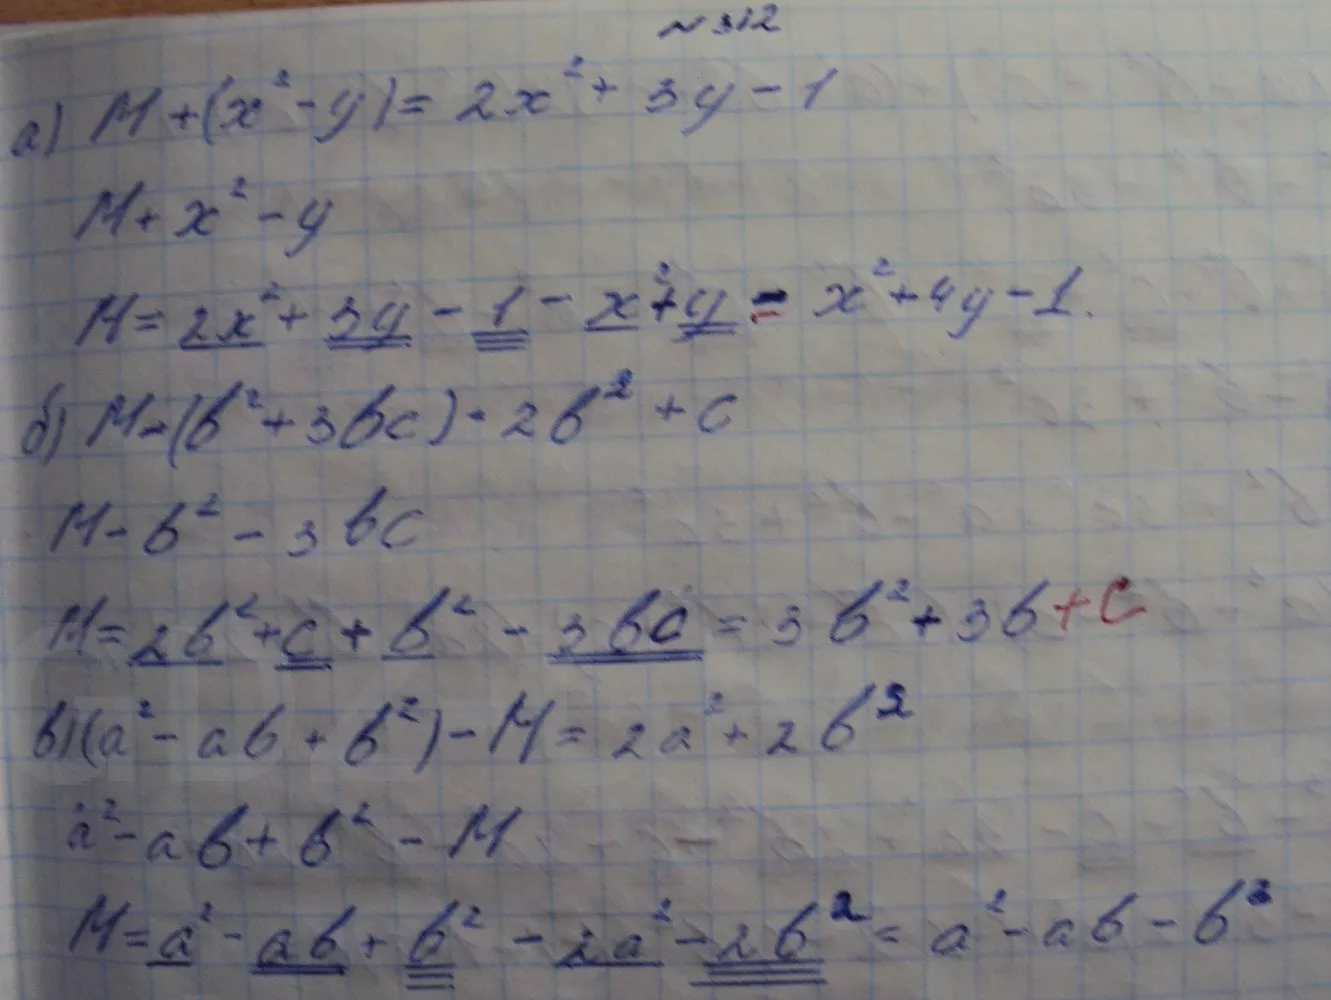 №312
а) M+(x²-y)= 2x²+3y-1
M+x²-y
M= 2x²+3y-1-x²+y = x²+4y-1.
б) M-(b²+3bc)=2b²+c
M-b²-3bc
M=2b²+c+b²-3bc=3b²+3b+c
в)(a²-ab+b²)-M=2a²+2b²
a²-ab+b²-M
M=a²-ab+b²-2a²-2b²=a²-ab-b²